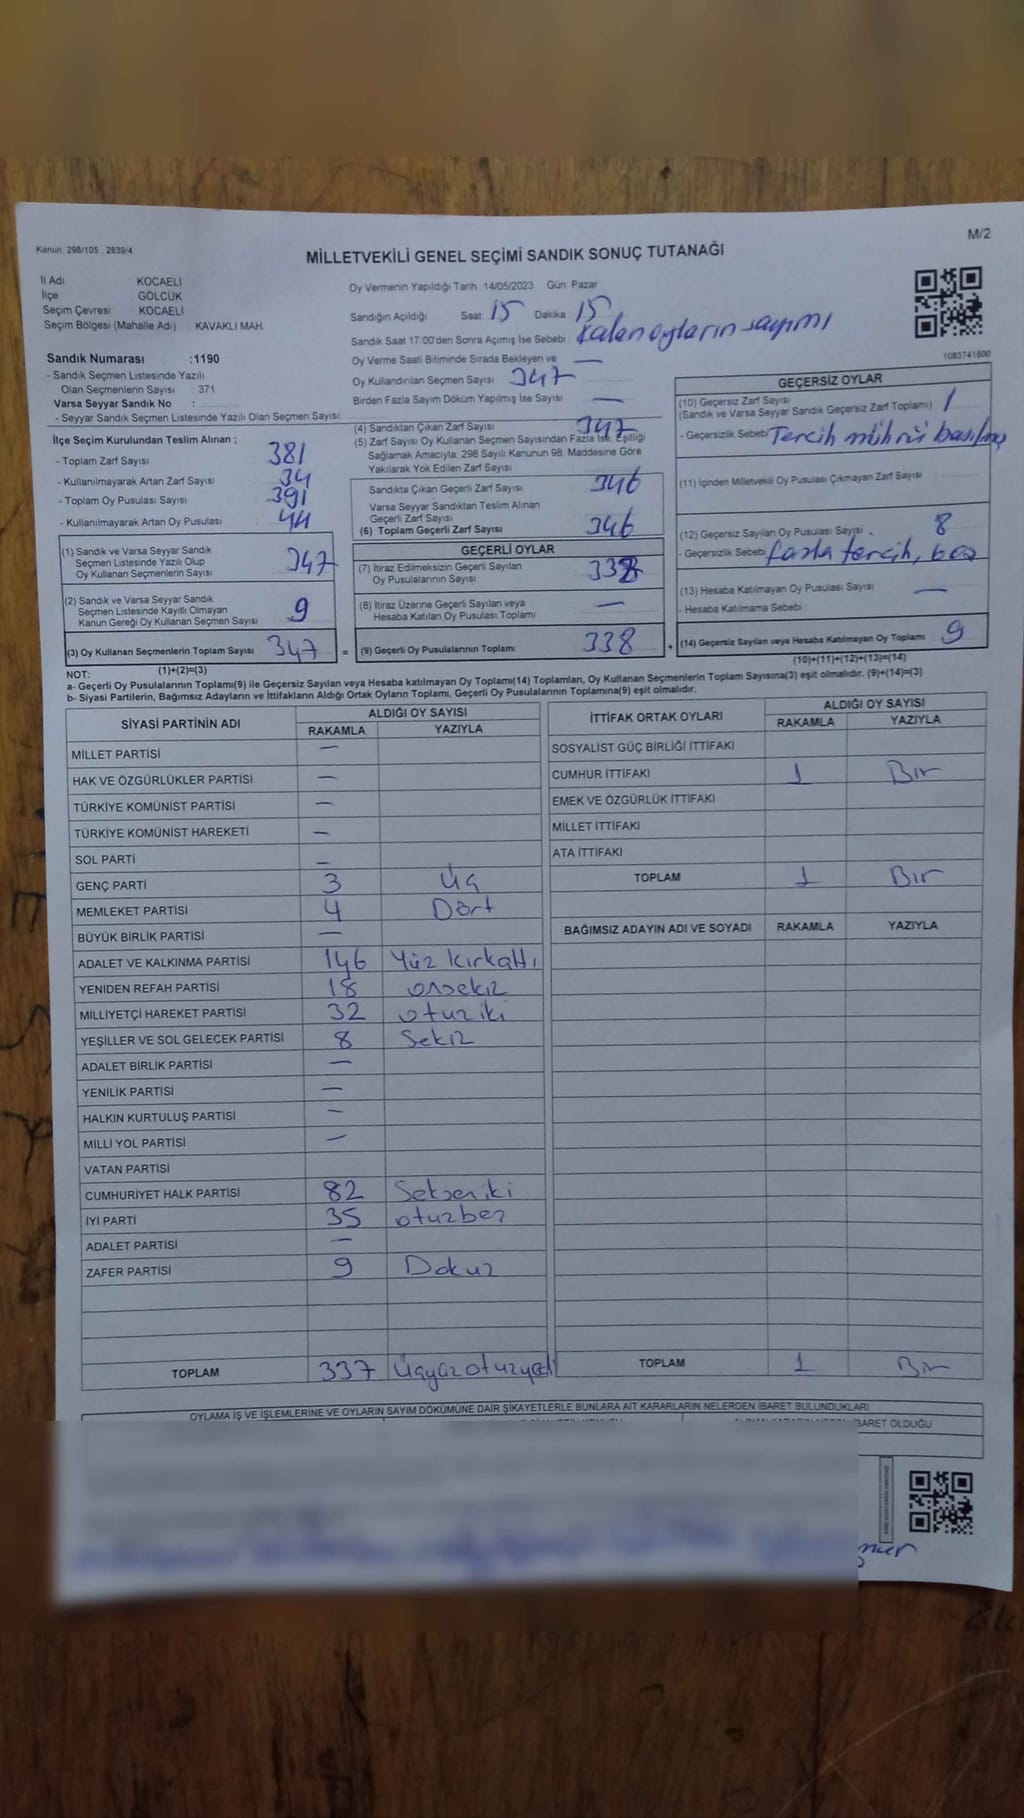 M/2
Kanun: 298/105 , 2839/4
MİLLETVEKİLİ GENEL SEÇİMİ SANDIK SONUÇ TUTANAĞI
İl Adı KOCAELİ
İlçe GÖLCÜK
Seçim Çevresi KOCAELİ
Seçim Bölgesi (Mahalle Adı) KAVAKLI MAH.
Sandık Numarası :1190
- Sandık Seçmen Listesinde Yazılı
Olan Seçmenlerin Sayısı : 371
Varsa Seyyar Sandık No :
- Seyyar Sandık Seçmen Listesinde Yazılı Olan Seçmen Sayısı:
Oy Vermenin Yapıldığı Tarih 14/05/2023 Gün Pazar
Sandığın Açıldığı Saat 15 Dakika 15
Sandık Saat 17:00'den Sonra Açımış İse Sebebi Kalan oyların sayımı
Oy Verme Saati Bitiminde Sırada Bekleyen ve —
Oy Kullandırılan Seçmen Sayısı 347
Birden Fazla Sayım Döküm Yapılmış İse Sayısı —
1083741800
İlçe Seçim Kurulundan Teslim Alınan ;
- Toplam Zarf Sayısı 381
- Kullanılmayarak Artan Zarf Sayısı 34
- Toplam Oy Pusulası Sayısı 391
- Kullanılmayarak Artan Oy Pusulası 44
(1) Sandık ve Varsa Seyyar Sandık
Seçmen Listesinde Yazılı Olup
Oy Kullanan Seçmenlerin Sayısı 347
(2) Sandık ve Varsa Seyyar Sandık
Seçmen Listesinde Kayıtlı Olmayan
Kanun Gereği Oy Kullanan Seçmen Sayısı 9
(3) Oy Kullanan Seçmenlerin Toplam Sayısı 347 =
(1)+(2)=(3)
(4) Sandıktan Çıkan Zarf Sayısı 347
(5) Zarf Sayısı Oy Kullanan Seçmen Sayısından Fazla İse, Eşitliği
Sağlamak Amacıyla; 298 Sayılı Kanunun 98. Maddesine Göre
Yakılarak Yok Edilen Zarf Sayısı
Sandıkta Çıkan Geçerli Zarf Sayısı 346
Varsa Seyyar Sandıktan Teslim Alınan
Geçerli Zarf Sayısı
(6) Toplam Geçerli Zarf Sayısı 346
GEÇERLİ OYLAR
(7) İtiraz Edilmeksizin Geçerli Sayılan
Oy Pusulalarının Sayısı 338
(8) İtiraz Üzerine Geçerli Sayılan veya
Hesaba Katılan Oy Pusulası Toplamı —
(9) Geçerli Oy Pusulalarının Toplamı 338 +
GEÇERSİZ OYLAR
(10) Geçersiz Zarf Sayısı 1
(Sandık ve Varsa Seyyar Sandık Geçersiz Zarf Toplamı)
- Geçersizlik Sebebi Tercih mührü basılmış
(11) İçinden Milletvekili Oy Pusulası Çıkmayan Zarf Sayısı
(12) Geçersiz Sayılan Oy Pusulası Sayısı 8
- Geçersizlik Sebebi fazla tercih, boş
(13) Hesaba Katılmayan Oy Pusulası Sayısı —
- Hesaba Katılmama Sebebi
(14) Geçersiz Sayılan veya Hesaba Katılmayan Oy Toplamı 9
(10)+(11)+(12)+(13)=(14)
NOT:
a- Geçerli Oy Pusulalarının Toplamı(9) ile Geçersiz Sayılan veya Hesaba katılmayan Oy Toplamı(14) Toplamları, Oy Kullanan Seçmenlerin Toplam Sayısına(3) eşit olmalıdır. (9)+(14)=(3)
b- Siyasi Partilerin, Bağımsız Adayların ve İttifakların Aldığı Ortak Oyların Toplamı, Geçerli Oy Pusulalarının Toplamına(9) eşit olmalıdır.
SİYASİ PARTİNİN ADI ALDIĞI OY SAYISI
RAKAMLA YAZIYLA
MİLLET PARTİSİ —
HAK VE ÖZGÜRLÜKLER PARTİSİ —
TÜRKİYE KOMÜNİST PARTİSİ —
TÜRKİYE KOMÜNİST HAREKETİ —
SOL PARTİ —
GENÇ PARTİ 3 Üç
MEMLEKET PARTİSİ 4 Dört
BÜYÜK BİRLİK PARTİSİ —
ADALET VE KALKINMA PARTİSİ 146 Yüz kırkaltı
YENİDEN REFAH PARTİSİ 18 onsekiz
MİLLİYETÇİ HAREKET PARTİSİ 32 otuziki
YEŞİLLER VE SOL GELECEK PARTİSİ 8 Sekiz
ADALET BİRLİK PARTİSİ —
YENİLİK PARTİSİ —
HALKIN KURTULUŞ PARTİSİ —
MİLLİ YOL PARTİSİ —
VATAN PARTİSİ
CUMHURİYET HALK PARTİSİ 82 Seksen iki
İYİ PARTİ 35 otuzbeş
ADALET PARTİSİ —
ZAFER PARTİSİ 9 Dokuz
TOPLAM 337 Üçyüzotuzyedi
İTTİFAK ORTAK OYLARI ALDIĞI OY SAYISI
RAKAMLA YAZIYLA
SOSYALİST GÜÇ BİRLİĞİ İTTİFAKI
CUMHUR İTTİFAKI 1 Bir
EMEK VE ÖZGÜRLÜK İTTİFAKI
MİLLET İTTİFAKI
ATA İTTİFAKI
TOPLAM 1 Bir
BAĞIMSIZ ADAYIN ADI VE SOYADI RAKAMLA YAZIYLA
TOPLAM 1 Bir
OYLAMA İŞ VE İŞLEMLERİNE VE OYLARIN SAYIM DÖKÜMÜNE DAİR ŞİKAYETLERLE BUNLARA AİT KARARLARIN NELERDEN İBARET BULUNDUKLARI
İBARET OLDUĞU